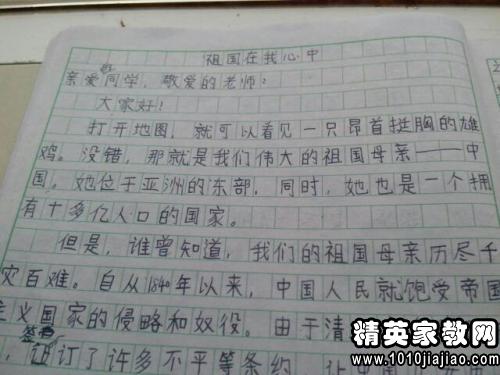 祖国在我心中
亲爱的同学，敬爱的老师：
大家好！
打开地图，就可以看见一只昂首挺胸的雄
鸡。没错，那就是我们伟大的祖国母亲——中
国。她位于亚洲的东部，同时，她也是一个拥
有十多亿人口的国家。
但是，谁曾知道，我们的祖国母亲历尽千
灾百难。自从1840年以来，中国人民就饱受帝国
主义国家的侵略和奴役。由于清
，签订了许多不平等条约，让
精英家教网
www.1010jiajiao.com